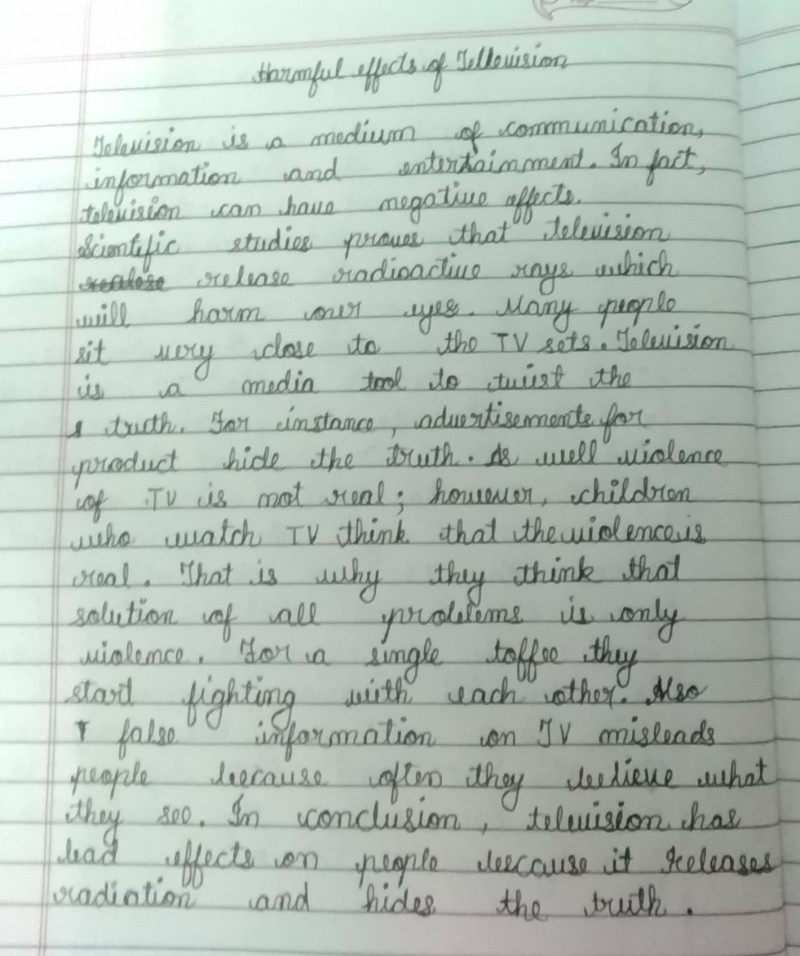 Harmful effects of Tellevision
Television is a medium of communication,
information and entertainment. In fact,
television can have negative affects.
Scientific studies proves that television
release radioactive rays which
will harm our eyes. Many people
sit very close to the TV sets. Television
is a media tool to twist the
truth. For instance, advertisements for
product hide the truth. As well violence
of TV is not real; however, children
who watch TV think that the violence is
real. That is why they think that
solution of all problems is only
violence. For a single toffee they
start fighting with each other. Also
false information on TV misleads
people because often they believe what
they see. In conclusion, television has
bad effects on people because it releases
radiation and hides the truth.